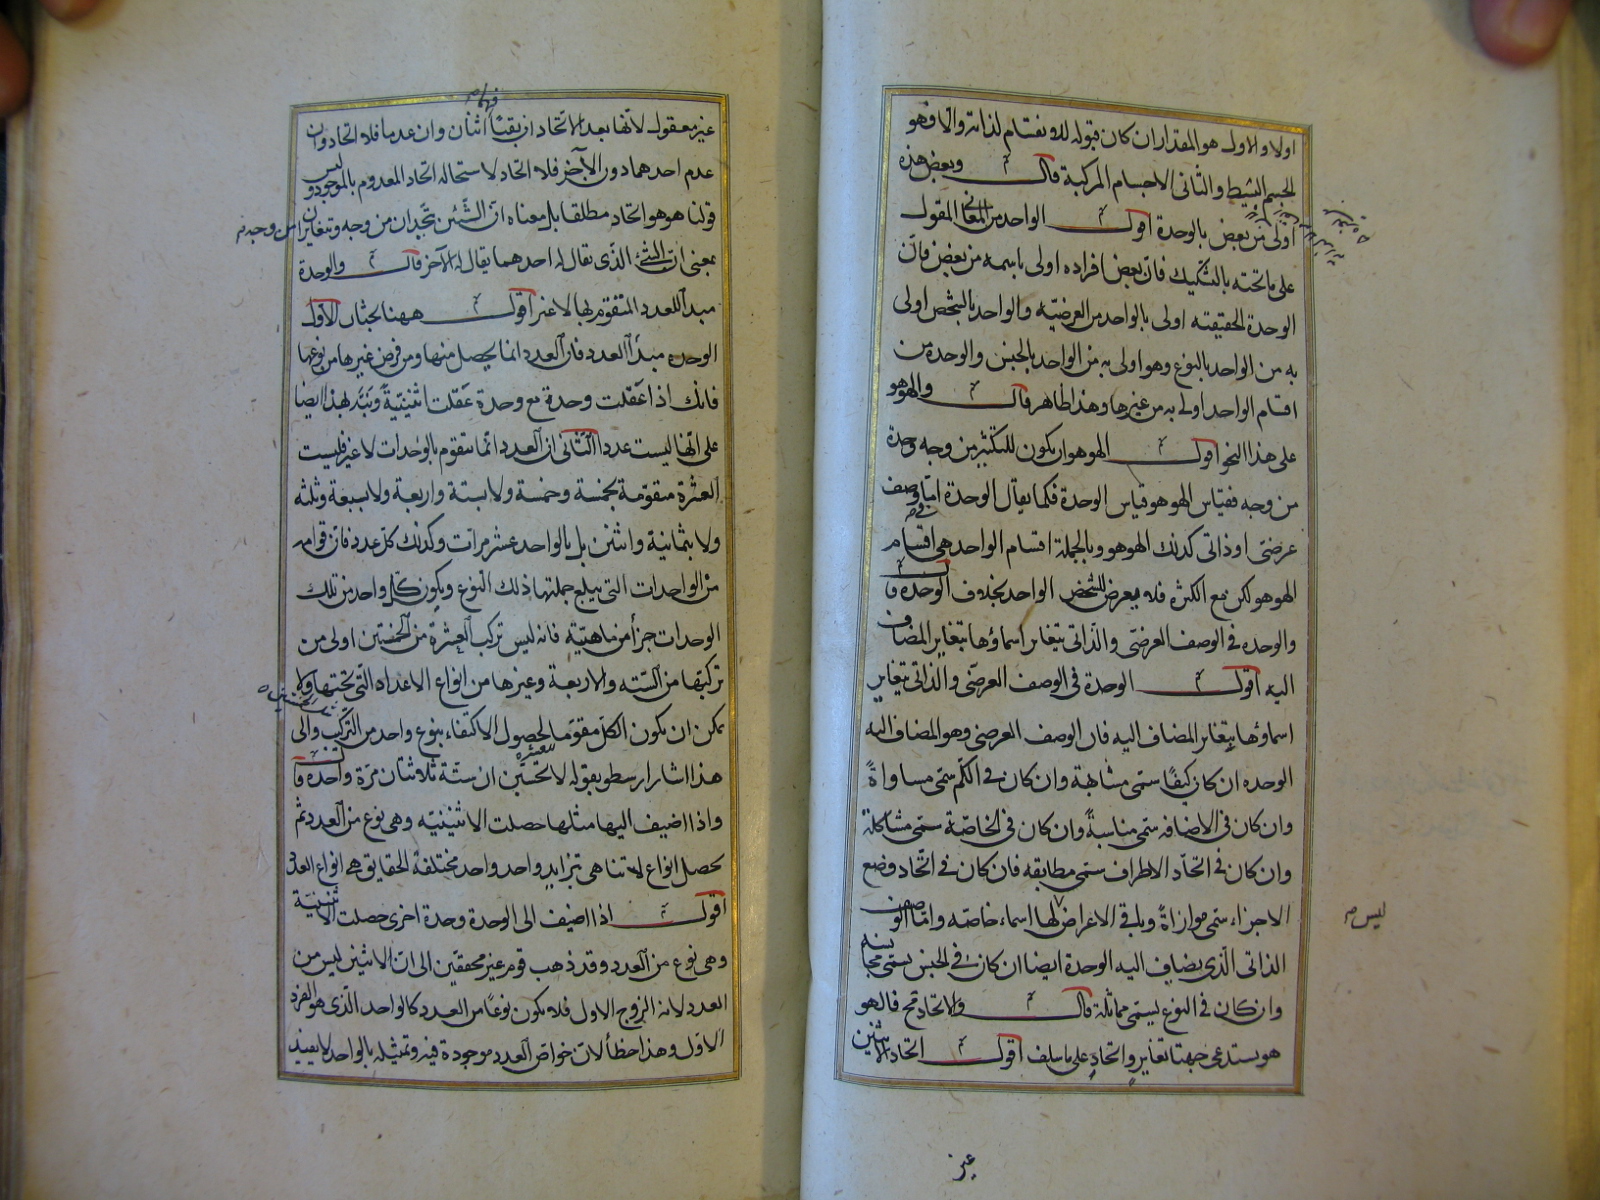 اولا والاول هو المقدار ان كان قبوله للانقسام لذاته والا فهو
الجسم البسيط والثانى الاجسام المركبة قال وبعض هذه
اولى من بعض بالوحدة اقول الواحد من المعانى المقول
على ما تحته بالتشكيك فان بعض افراده اولى باسمه من بعض فان
الوحدة الحقيقته اولى بالواحد من العرضيّة والواحد بالشخص اولى
به من الواحد بالنوع وهو اولى به من الواحد بالجنس والوحدة من
اقسام الواحد اولى به من غيرها وهذا ظاهر قال والهوهو
على هذا النحو اقول الهوهو ان يكون للكثير من وجه وحدة
من وجه فقياس الهوهو قياس الوحدة فكما يقال الوحدة امّا فى وصف
عرضىّ او ذاتى كذلك الهوهو وبالجملة اقسام الواحد هى اقسام
الهوهو لكن مع الكثرة فلا يعرض للشخص الواحد بخلاف الوحدة قال
والوحده فى الوصف العرضىّ والذّاتى يتغاير اسماؤها بتغاير المضاف
اليه اقول الوحدة فى الوصف العرضىّ والذاتى يتغاير
اسماؤها بتغاير المضاف اليه فان الوصف العرضى وهو المضاف اليه
الوحده ان كان كيفًا سمّى مشابهة وان كان فى الكمّ سمّى مساواةً
وان كان فى الاضافه سمّى مناسبةً وان كان فى الخاصّة سمّى مشاكلة
وان كان فى اتّحاد الاطراف سمّى مطابقه فان كان فى اتّحاد وضع
الاجزاء سمّى موازاةً وباقى الاعراض لها اسماء خاصّه وامّا الوصف
ليس
الذاتى الّذى يضاف اليه الوحدة ايضا ان كان فى الجنس يسمّى مجانسه
وان كان فى النوع يسمّى مماثلة قال والاتحاد مح فالهو
هو يستدعى جهتا تغاير واتحاد على ما سلف اقول اتحاد الاثنين
غير
فهما
غير معقول لانّهما بعد الاتحاد ان بقيا اثنان وان عدما فلا اتحاد وان
عدم احدهما دون الآخر فلا اتحاد لاستحاله اتحاد المعدوم بالموجود وليس
قولنا هو هو اتحاد مطلقا بل معناه انّ الشّيئين يتّحدان من وجه ويتغايران من وجه
بمعنى انّ الشّئ الّذى يقال له احدهما يقال له الآخر قال والوحدة
مبدا للعدد المتقوّم بها لا غير اقول ههنا بحثان الاوّل
الوحده مبدأ العدد فان العدد انما يحصل منها ومن فرض غيرها من نوعها
فانّك اذا عَقلت وحدة مع وحدة عَقلت اثنينيّةً ونبّه بهذا ايضا
على انّها ليست عددا الثّانى ان العدد انّما يتقوّم بالوحدات لا غير فليست
العشرة متقوّمة بخمسة وخمسة ولا بستة واربعة ولا بسبعة وثلثه
ولا بثمانية واثنين بل بالواحد عشر مرات وكذلك كل عدد فانّ قوامه
من الواحدات التى يبلغ جملتها ذلك النّوع ويكون كلّ واحد من تلك
الوحدات جزأً من ماهيّته فانه ليس تركب العشرة من الخمستين اولى من
تركّبها من الستّه والاربعة وغيرها من انواع الاعداد التى تحتها ولا
يمكن ان يكون الكلّ مقوّما لحصول الاكتفاء بنوع واحد من التركيب والى
هذا اشار ارسطو بقوله لا تحسبنّ انّ ستّة ثلاثتان مرّة واحده قال
واذا اضيف اليها مثلها حصلت الاثنينيّه وهى نوع من العدد ثم
يحصل انواع لا تتناهى بتزايد واحد واحد مختلفة الحقايق هى انواع العدد
اقول اذا اضيف الى الوحدة وحدة اخرى حصلت الاثنينيّة
وهى نوع من العدد وقد ذهب قوم غير محققين الى انّ الاثنين ليس من
العدد لانه الزوج الاول فلا يكون نوعًا من العدد كالواحد الّذى هو الفرد
الاوّل وهذا خطأ لانّ خواصّ العدد موجودة فيه وتمثيله بالواحد لا يفيد